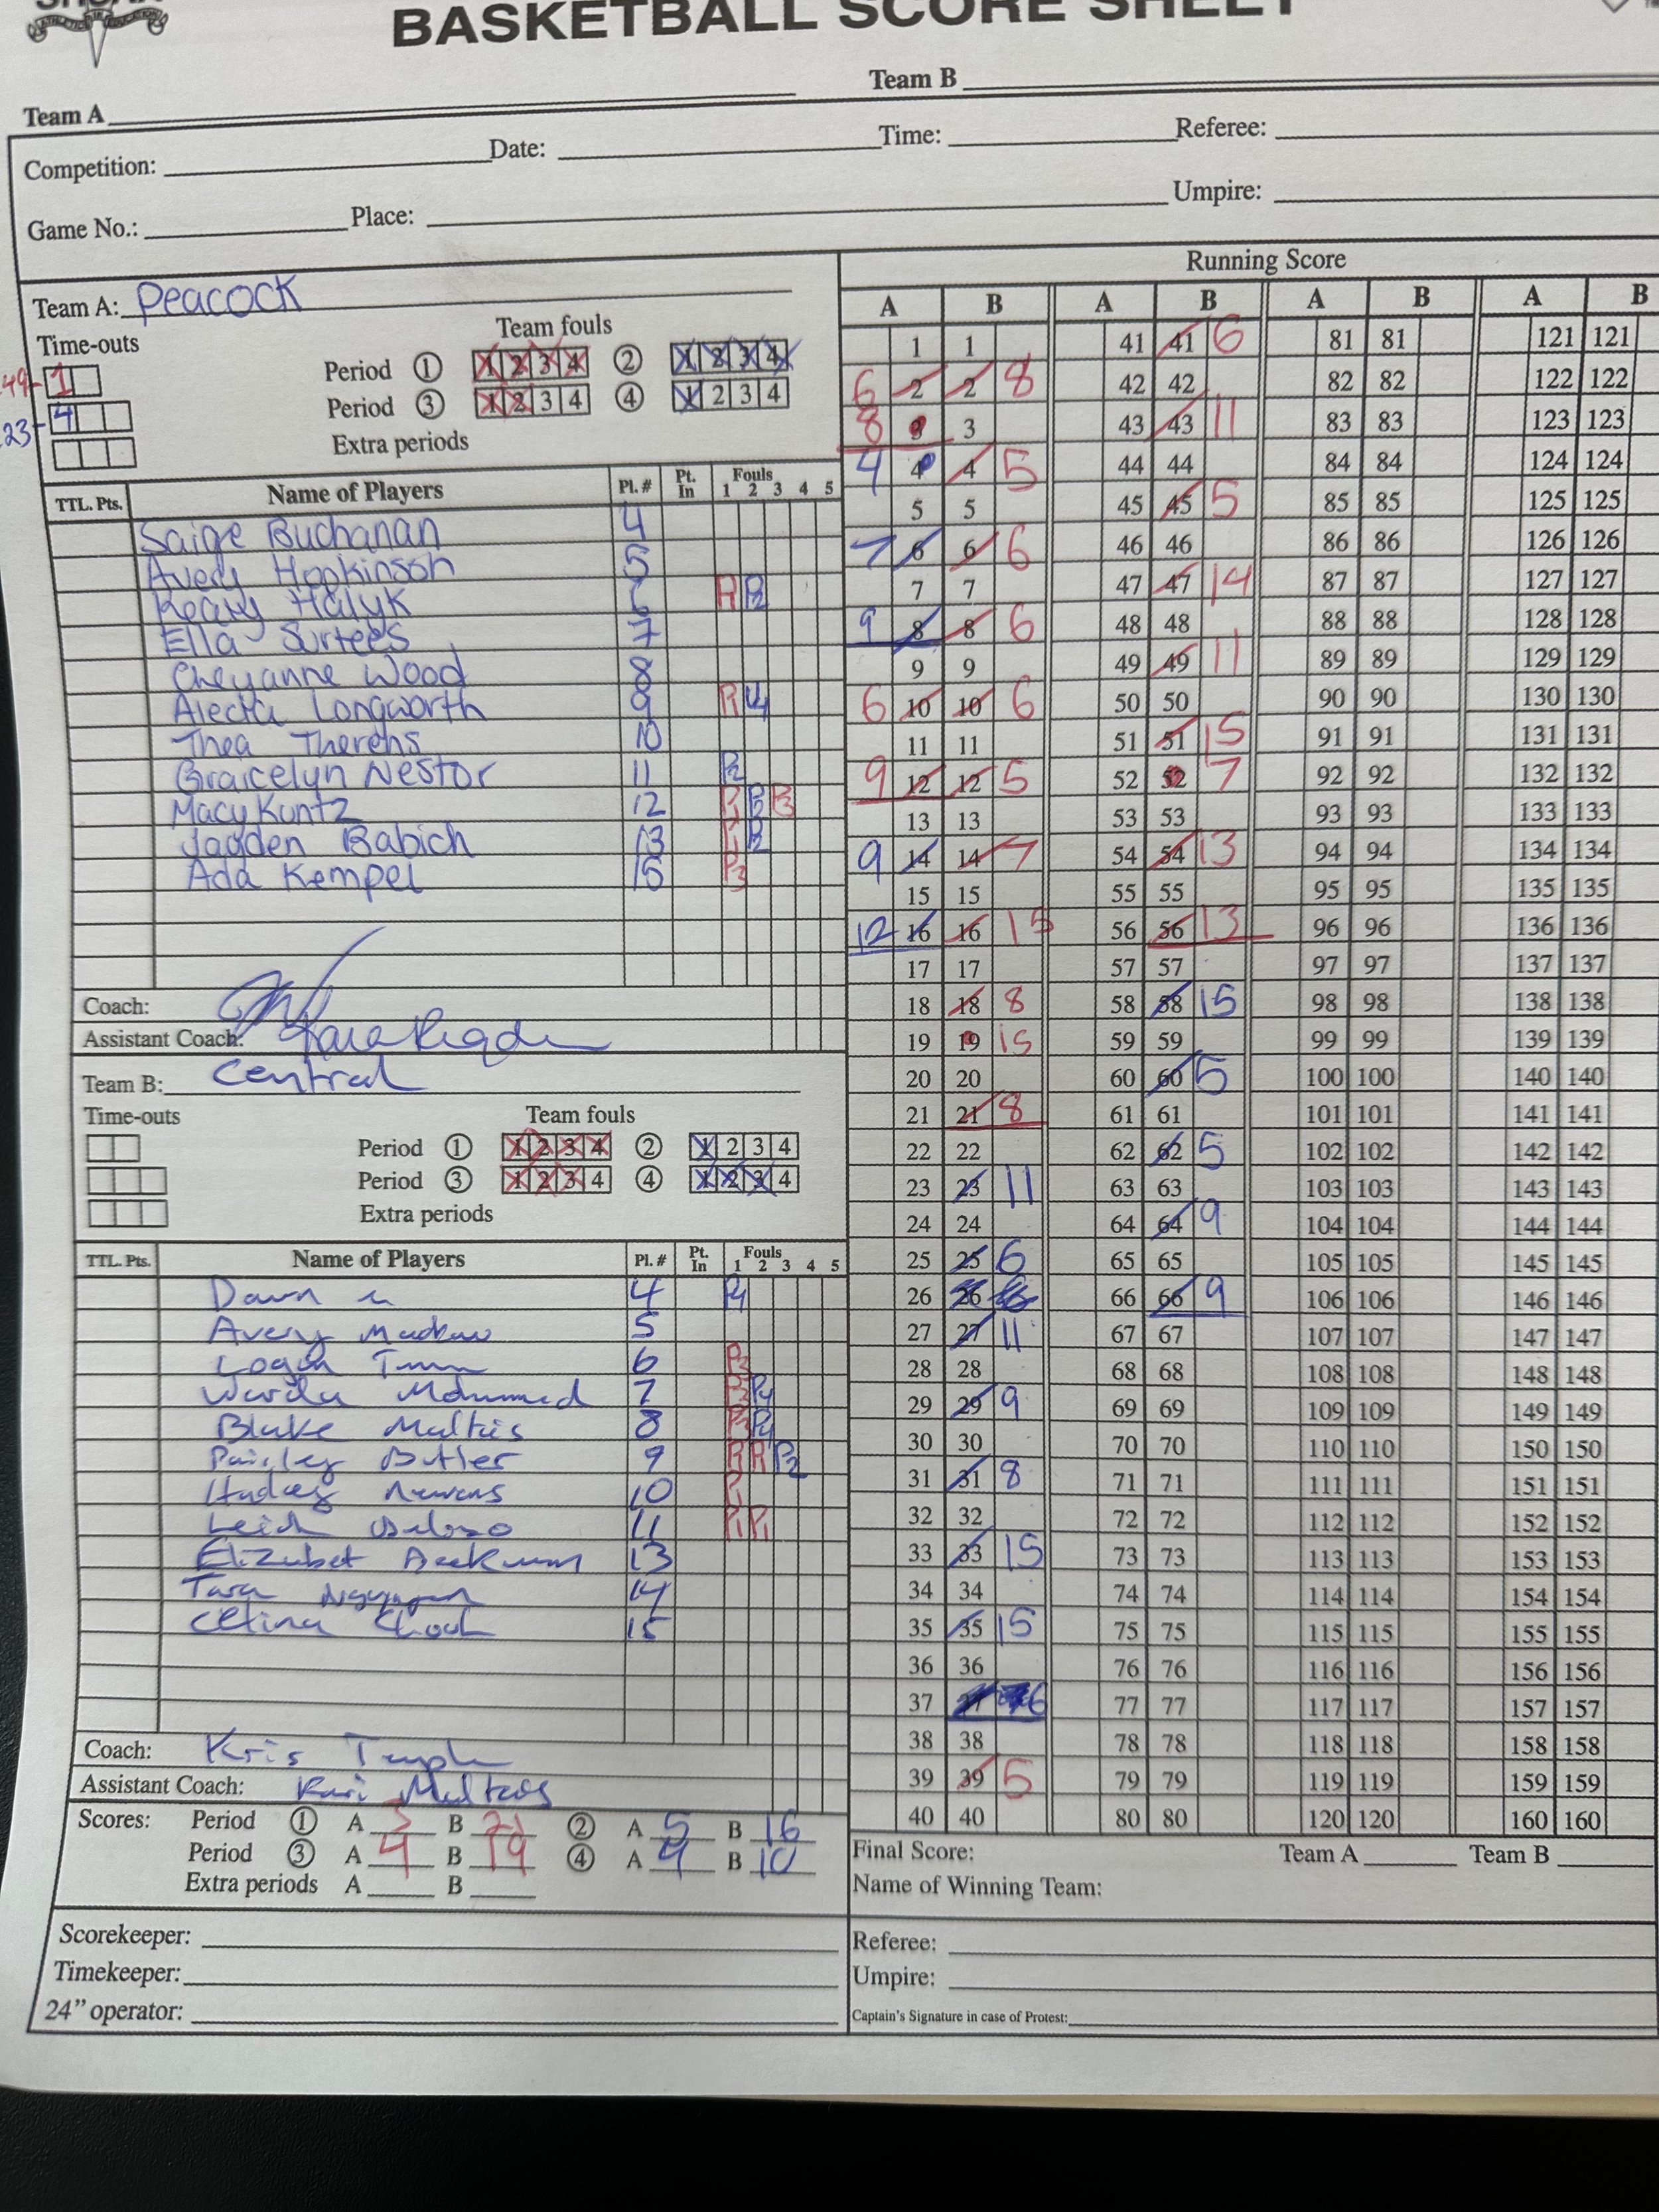 BASKETBALL SCORE SHEET
Team A Team B
Competition: Date: Time: Referee:
Game No.: Place: Umpire:
Team A: Peacock
Time-outs Team fouls
Period 1 1 2 3 4 2 1 2 3 4
Period 3 1 2 3 4 4 1 2 3 4
Extra periods
1
4
TTL. Pts. Name of Players Pl. # Pt. In Fouls 1 2 3 4 5
Saige Buchanan 4
Avery Hopkinson 5
Halyk 6 P1 P2
Ella Surtees 7
Cheyanne Wood 8
Alecia Longworth 9 P1 P4
Thea Therens 10
Gracelyn Nestor 11 P2
Macy Kuntz 12 P1 P2 P3
Jayden Babich 13 P1 P2
Ada Kempel 15 P3
Coach:
Assistant Coach:
Team B: Central
Time-outs Team fouls
Period 1 1 2 3 4 2 1 2 3 4
Period 3 1 2 3 4 4 1 2 3 4
Extra periods
TTL. Pts. Name of Players Pl. # Pt. In Fouls 1 2 3 4 5
4 P4
Avery 5
Logan 6 P3
7 P3 P4
Blake 8 P3 P4
Paisley Butler 9 P1 P1 P2
10 P1
11 P1 P1
13
Tara 14
Celina 15
Coach: Kris
Assistant Coach:
Scores: Period 1 A 3 B 21 2 A 5 B 16
Period 3 A 4 B 19 4 A 4 B 10
Extra periods A B
Scorekeeper:
Timekeeper:
24” operator:
Running Score
A B A B A B A B
1 1 41 41 6 81 81 121 121
6 2 2 8 42 42 82 82 122 122
8 3 3 43 43 11 83 83 123 123
4 4 4 5 44 44 84 84 124 124
5 5 45 45 5 85 85 125 125
7 6 6 6 46 46 86 86 126 126
7 7 47 47 14 87 87 127 127
9 8 8 6 48 48 88 88 128 128
9 9 49 49 11 89 89 129 129
6 10 10 6 50 50 90 90 130 130
11 11 51 51 15 91 91 131 131
9 12 12 5 52 52 7 92 92 132 132
13 13 53 53 93 93 133 133
9 14 14 7 54 54 13 94 94 134 134
15 15 55 55 95 95 135 135
12 16 16 15 56 56 13 96 96 136 136
17 17 57 57 97 97 137 137
18 18 8 58 58 15 98 98 138 138
19 19 15 59 59 99 99 139 139
20 20 60 60 5 100 100 140 140
21 21 8 61 61 101 101 141 141
22 22 62 62 5 102 102 142 142
23 23 11 63 63 103 103 143 143
24 24 64 64 9 104 104 144 144
25 25 6 65 65 105 105 145 145
26 26 66 66 9 106 106 146 146
27 27 11 67 67 107 107 147 147
28 28 68 68 108 108 148 148
29 29 9 69 69 109 109 149 149
30 30 70 70 110 110 150 150
31 31 8 71 71 111 111 151 151
32 32 72 72 112 112 152 152
33 33 15 73 73 113 113 153 153
34 34 74 74 114 114 154 154
35 35 15 75 75 115 115 155 155
36 36 76 76 116 116 156 156
37 37 6 77 77 117 117 157 157
38 38 78 78 118 118 158 158
39 39 5 79 79 119 119 159 159
40 40 80 80 120 120 160 160
Final Score: Team A Team B
Name of Winning Team:
Referee:
Umpire:
Captain’s Signature in case of Protest: